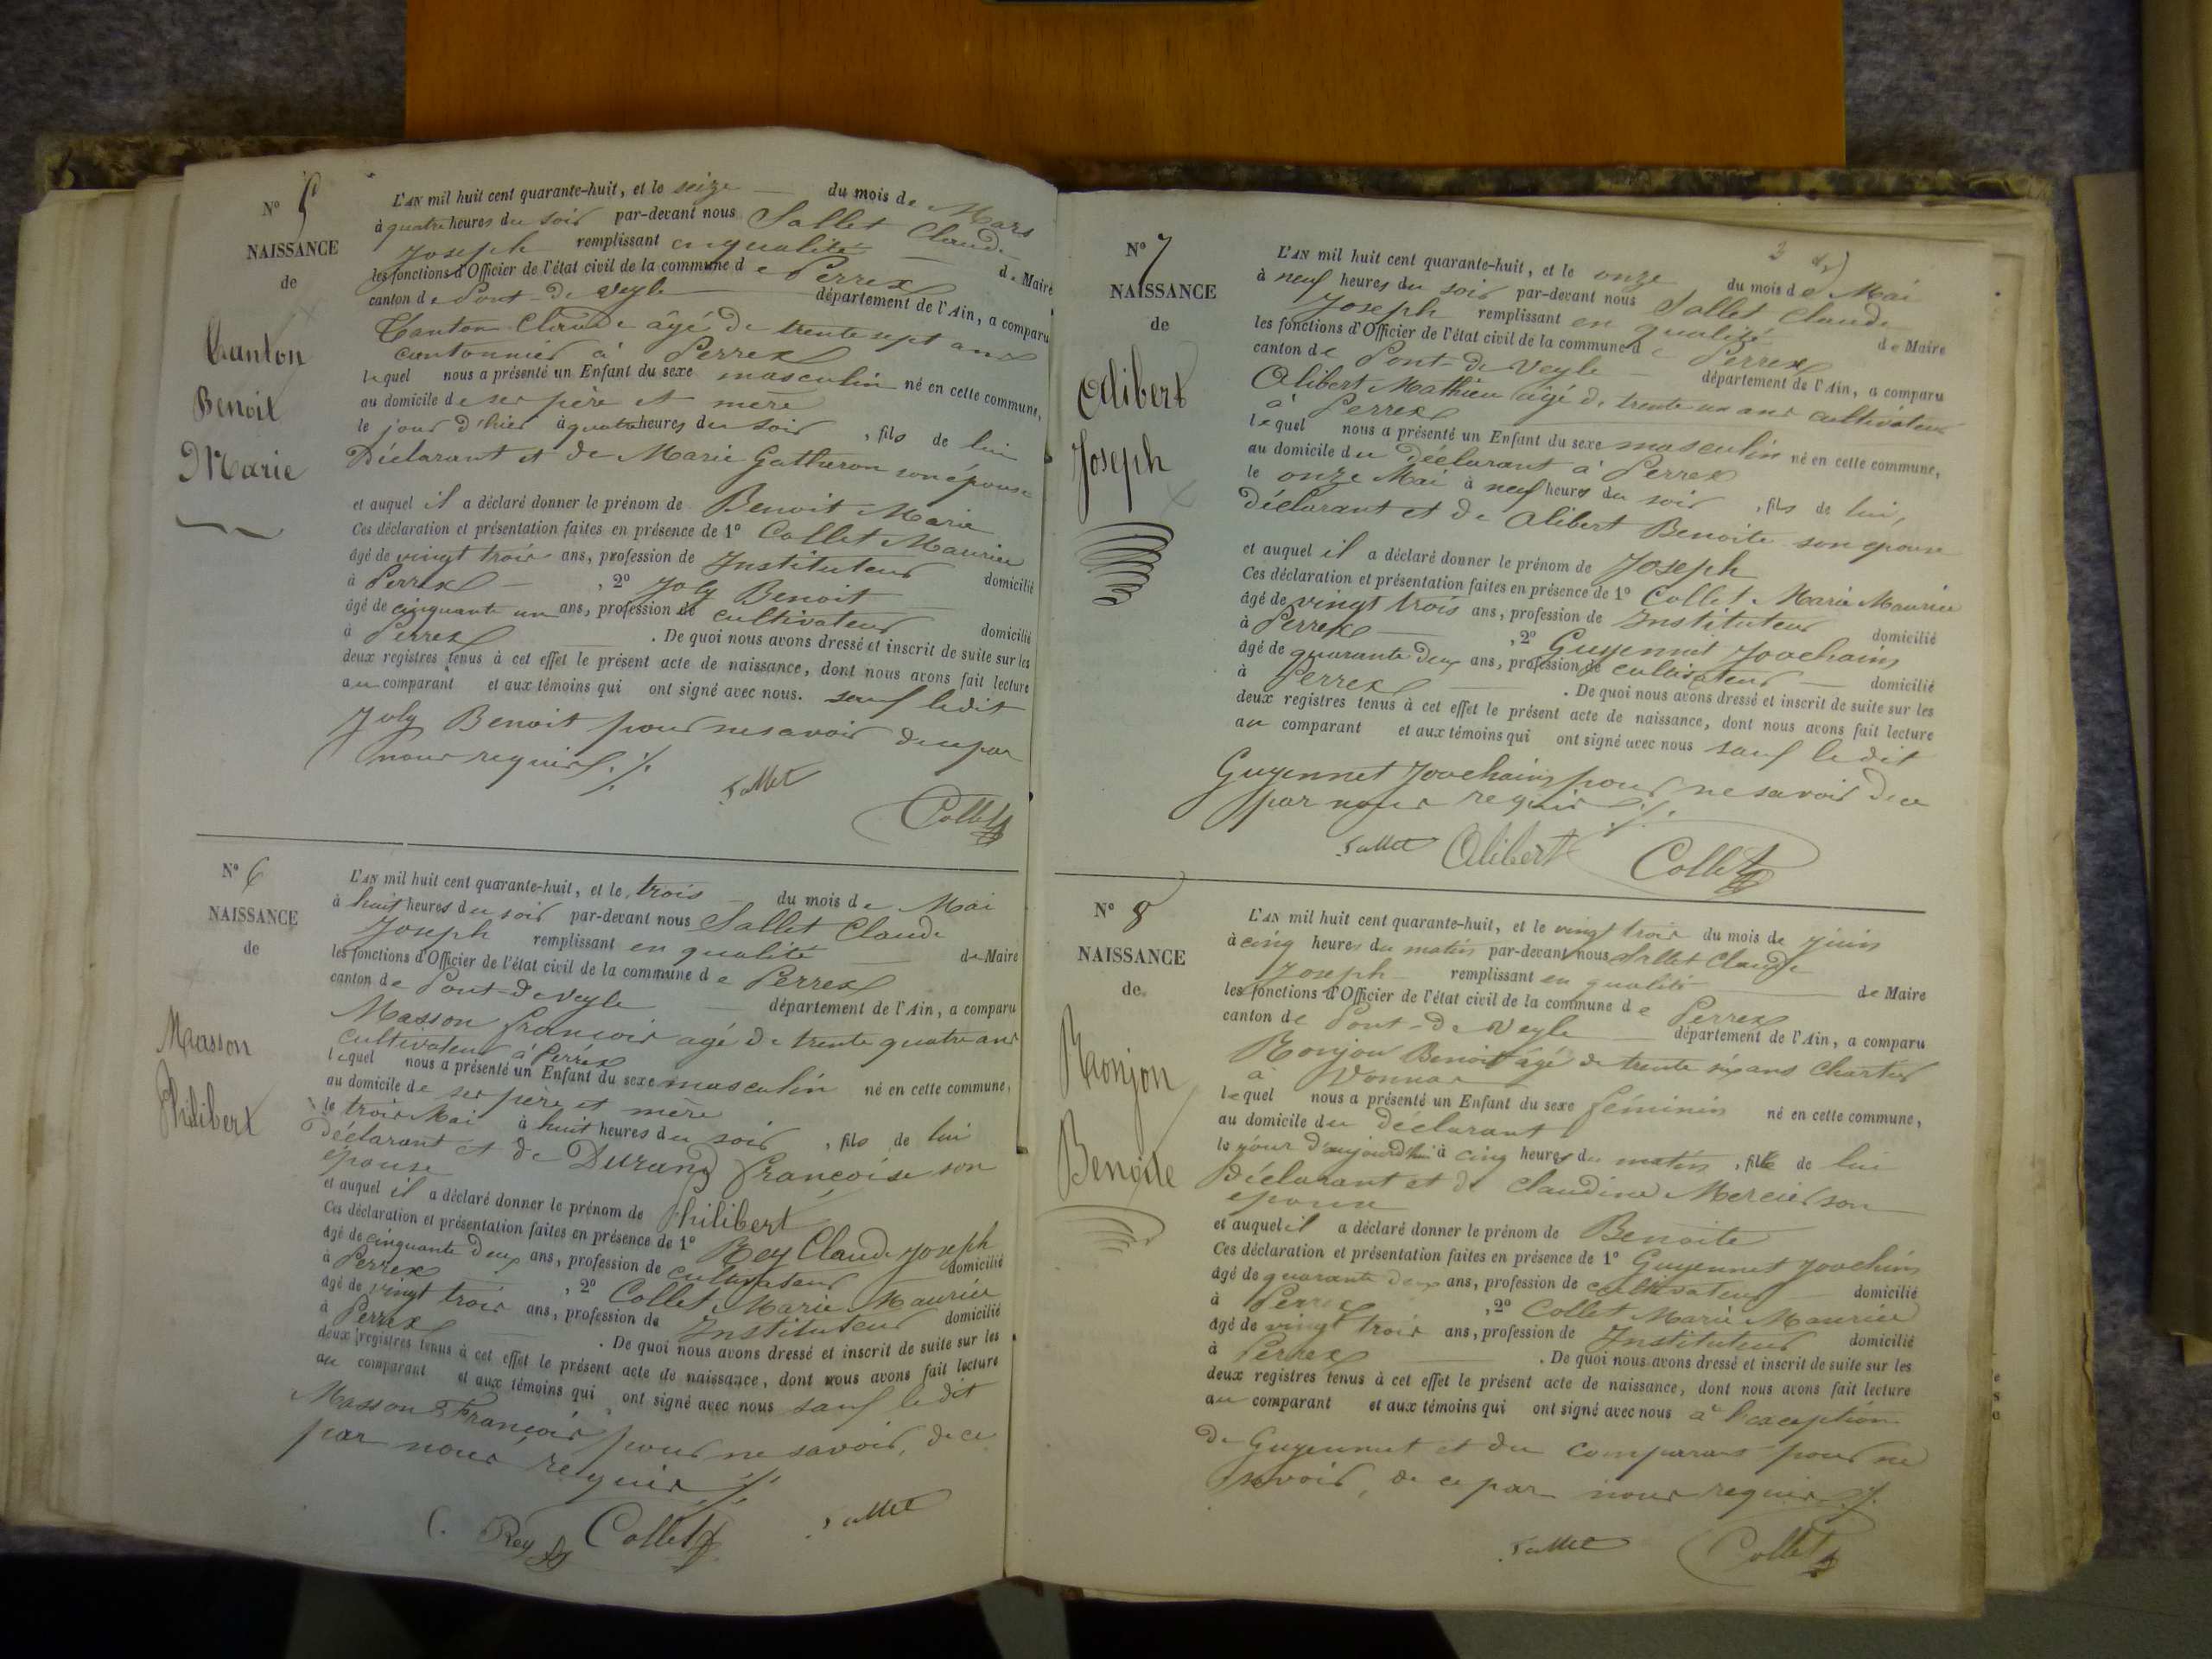 N° 5
NAISSANCE
de
Canton
Benoit
Marie
L'AN mil huit cent quarante-huit, et le seize du mois de Mars
à quatre heures du soir par-devant nous Sallet Claude
Joseph remplissant en qualité de Maire
les fonctions d'Officier de l'état civil de la commune de Perrex
canton de Pont-de-Veyle département de l'Ain, a comparu
Canton Claude âgé de trente sept ans
cantonnier à Perrex
lequel nous a présenté un Enfant du sexe masculin né en cette commune,
au domicile de ses père et mère
le jour d'hier à quatre heures du soir, fils de lui
Déclarant et de Marie Gatheron son épouse
et auquel il a déclaré donner le prénom de Benoit Marie
Ces déclaration et présentation faites en présence de 1° Collet Maurice
âgé de vingt trois ans, profession de Instituteur domicilié
à Perrex, 2° Joly Benoit
âgé de cinquante un ans, profession de cultivateur domicilié
à Perrex. De quoi nous avons dressé et inscrit de suite sur les
deux registres tenus à cet effet le présent acte de naissance, dont nous avons fait lecture
au comparant et aux témoins qui ont signé avec nous. sauf ledit
Joly Benoit pour ne savoir de ce par
nous requis ./.
Sallet
Collet
N° 6
NAISSANCE
de
Masson
Philibert
L'AN mil huit cent quarante-huit, et le trois du mois de Mai
à huit heures du soir par-devant nous Sallet Claude
Joseph remplissant en qualité de Maire
les fonctions d'Officier de l'état civil de la commune de Perrex
canton de Pont-de-Veyle département de l'Ain, a comparu
Masson françois agé de trente quatre ans
cultivateur à Perrex
lequel nous a présenté un Enfant du sexe masculin né en cette commune,
au domicile de ses pere et mère
le trois Mai à huit heures du soir, fils de lui
Déclarant et de Durand françoise son
épouse
et auquel il a déclaré donner le prénom de Philibert
Ces déclaration et présentation faites en présence de 1° Rey Claude Joseph
âgé de cinquante deux ans, profession de cultivateur domicilié
à Perrex, 2° Collet Marie Maurice
âgé de vingt trois ans, profession de Instituteur domicilié
à Perrex. De quoi nous avons dressé et inscrit de suite sur les
deux registres tenus à cet effet le présent acte de naissance, dont nous avons fait lecture
au comparant et aux témoins qui ont signé avec nous sauf le dit
Masson François pour ne savoir, de ce
par nous requis ./.
C. Rey Collet Sallet
N° 7
NAISSANCE
de
Alibert
Joseph
L'AN mil huit cent quarante-huit, et le onze du mois de Mai
à neuf heures du soir par-devant nous Sallet Claude
Joseph remplissant en qualité de Maire
les fonctions d'Officier de l'état civil de la commune de Perrex
canton de Pont-de-Veyle département de l'Ain, a comparu
Alibert Mathieu âgé de trente un ans cultivateur
à Perrex
lequel nous a présenté un Enfant du sexe masculin né en cette commune,
au domicile du déclarant à Perrex
le onze Mai à neuf heures du soir, fils de lui,
déclarant et de Alibert Benoite son epouse
et auquel il a déclaré donner le prénom de Joseph
Ces déclaration et présentation faites en présence de 1° Collet Marie Maurice
âgé de vingt trois ans, profession de Instituteur domicilié
à Perrex, 2° Guyennet Joochains
âgé de quarante deux ans, profession de cultivateur domicilié
à Perrex. De quoi nous avons dressé et inscrit de suite sur les
deux registres tenus à cet effet le présent acte de naissance, dont nous avons fait lecture
au comparant et aux témoins qui ont signé avec nous sauf le dit
Guyennet Joochains pour ne savoir de ce
par nous requis ./.
Sallet Alibert Collet
N° 8
NAISSANCE
de
Ronjon
Benoite
L'AN mil huit cent quarante-huit, et le vingt trois du mois de juin
à cinq heures du matin par-devant nous Sallet Claude
Joseph remplissant en qualité de Maire
les fonctions d'Officier de l'état civil de la commune de Perrex
canton de Pont-de-Veyle département de l'Ain, a comparu
Ronjon Benoit âgé de trente six ans Chartier
à Vonnas
lequel nous a présenté un Enfant du sexe féminin né en cette commune,
au domicile du déclarant
le jour d'aujourd'hui à cinq heures du matin, fille de lui
Déclarant et de Claudine Mercier son
epouse
et auquel il a déclaré donner le prénom de Benoite
Ces déclaration et présentation faites en présence de 1° Guyennet Joochins
âgé de quarante deux ans, profession de cultivateur domicilié
à Perrex, 2° Collet Marie Maurice
âgé de vingt trois ans, profession de Instituteur domicilié
à Perrex. De quoi nous avons dressé et inscrit de suite sur les
deux registres tenus à cet effet le présent acte de naissance, dont nous avons fait lecture
au comparant et aux témoins qui ont signé avec nous à l'exception
de Guyennet et du comparant pour ne
savoir, de ce par nous requis ./.
Sallet
Collet